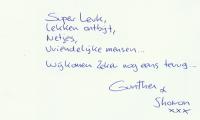 Super Leuk,
Lekker ontbijt,
Netjes,
Vriendelijke mensen...
Wij komen zeker nog eens terug...
Gunther &
Sharon
xxx